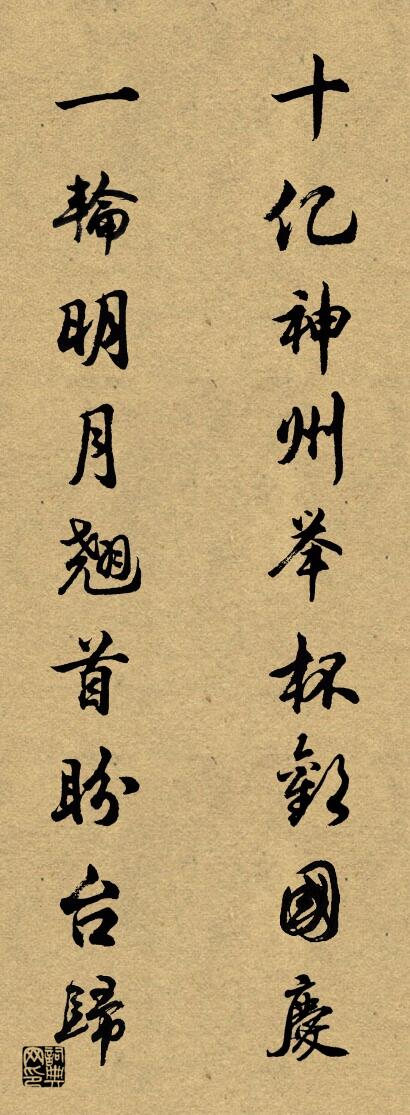 十亿神州举杯歡國慶
一輪明月翘首盼台歸
詞典
网印